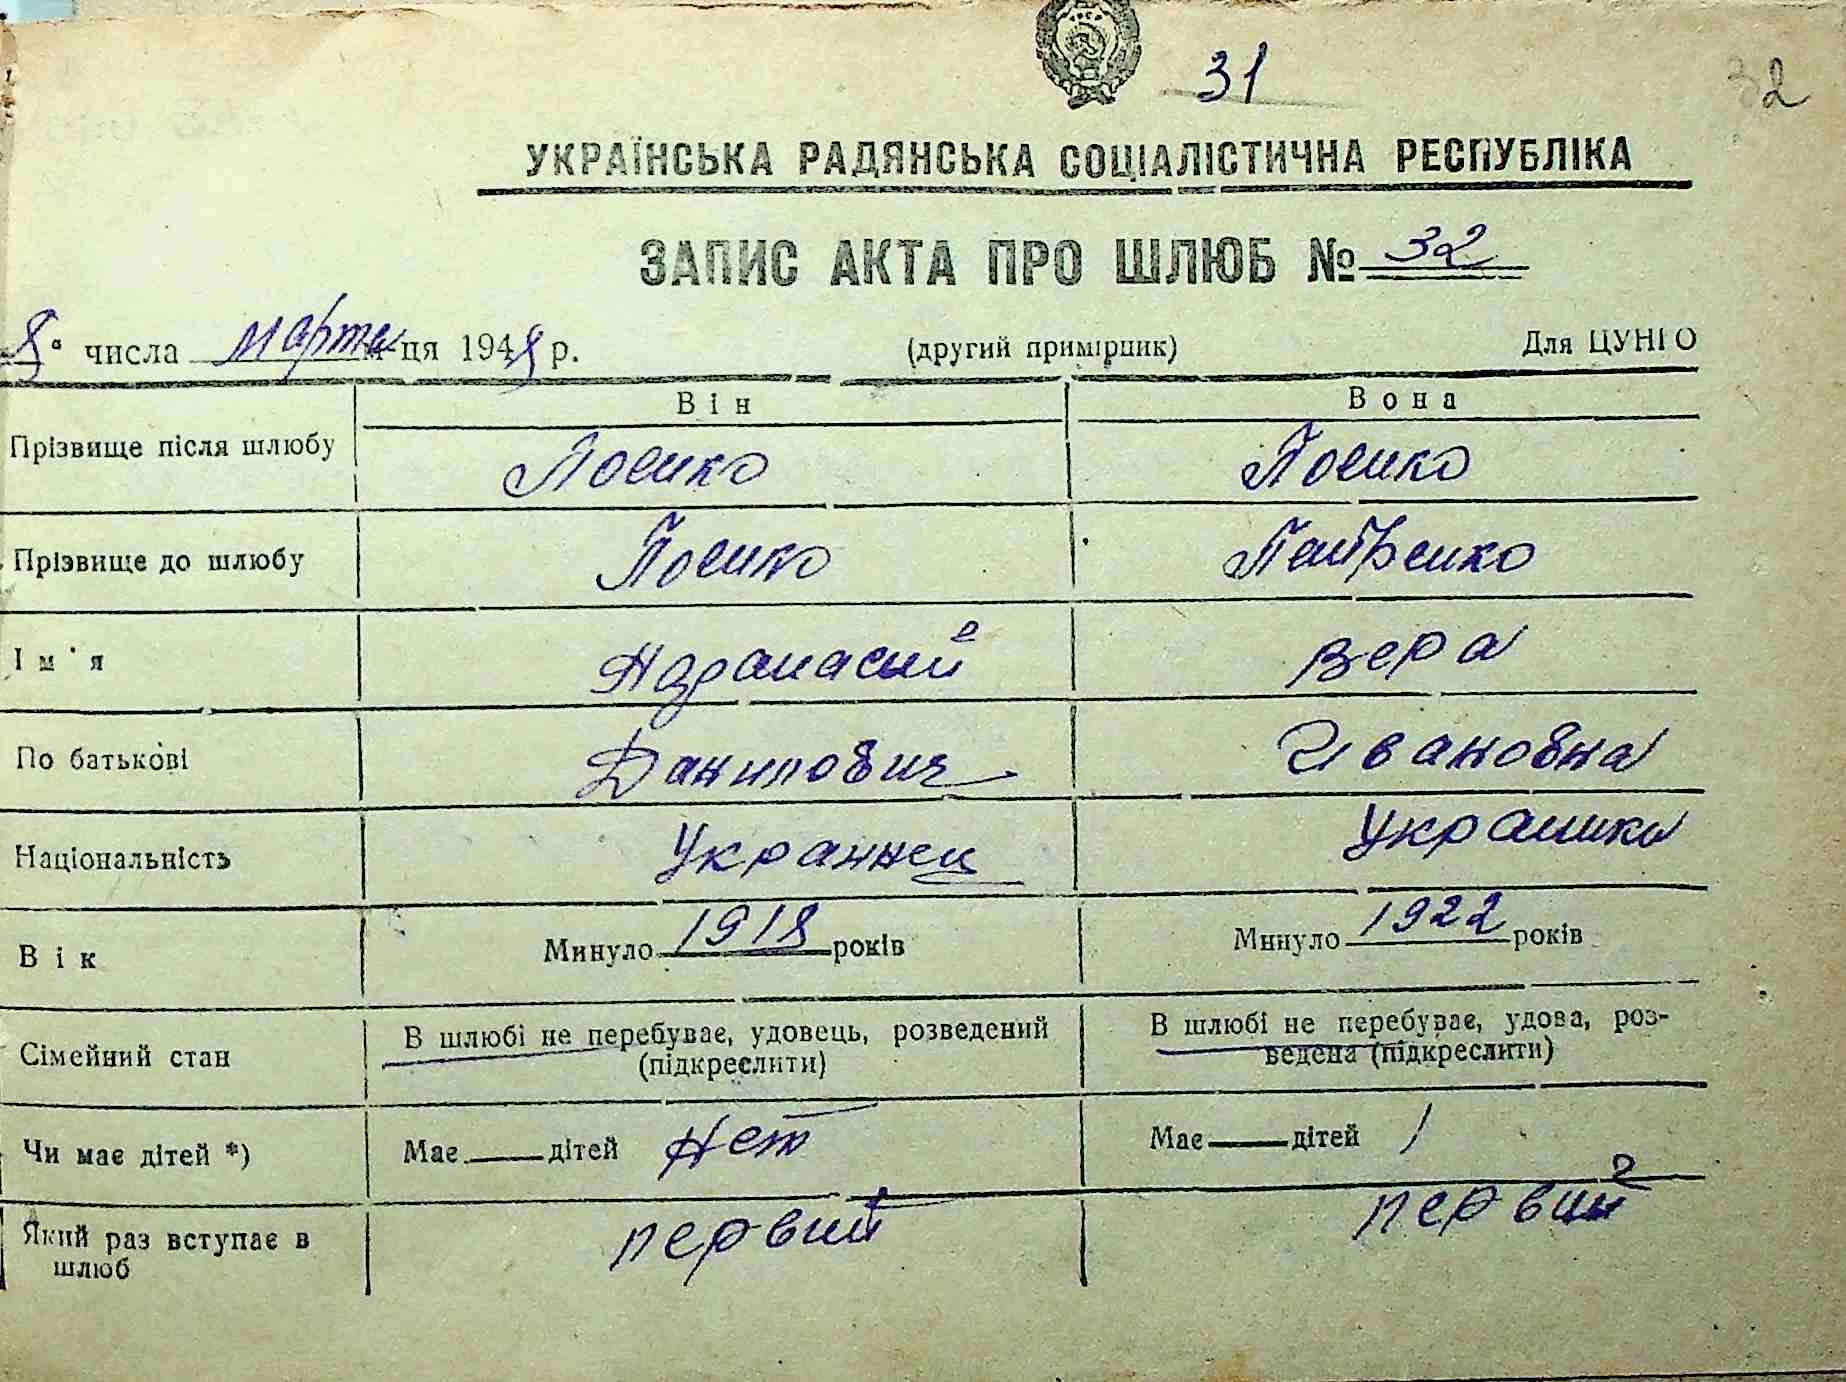 31
32
УКРАЇНСЬКА РАДЯНСЬКА СОЦІАЛІСТИЧНА РЕСПУБЛІКА
ЗАПИС АКТА ПРО ШЛЮБ № 32
8 числа марта м-ця 1948 р. (другий примірник) Для ЦУНГО
Він Вона
Прізвище після шлюбу
Прізвище до шлюбу
Ім'я Вера
По батькові Данилович Ивановна
Національність Украинец Украинка
Вік Минуло 1918 років Минуло 1922 років
Сімейний стан В шлюбі не перебуває, удовець, розведений (підкреслити) В шлюбі не перебуває, удова, роз-
ведена (підкреслити)
Чи має дітей *) Має дітей нет Має дітей /
Який раз вступає в первий первий
шлюб